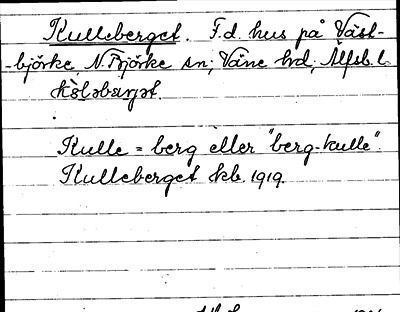 Kulleberget. F.d. hus på Väst-
-björke N. Björke sn; Väne hd, Älfsb. l.
Kulle = berg eller "berg-kulle".
Kulleberget kb. 1919.